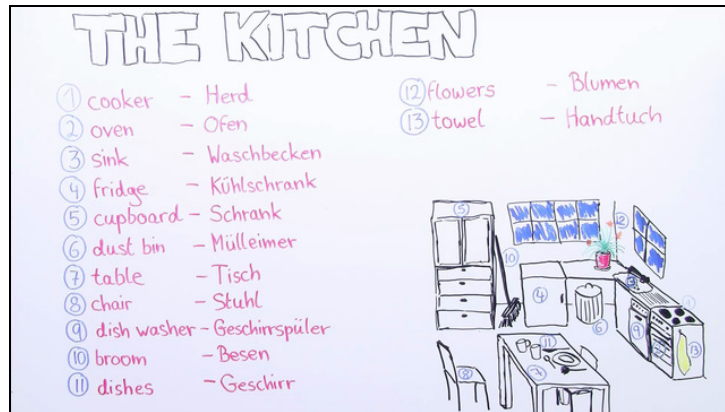 THE KITCHEN
1 cooker - Herd
2 oven - Ofen
3 sink - Waschbecken
4 fridge - Kühlschrank
5 cupboard - Schrank
6 dust bin - Mülleimer
7 table - Tisch
8 chair - Stuhl
9 dish washer - Geschirrspüler
10 broom - Besen
11 dishes - Geschirr
12 flowers - Blumen
13 towel - Handtuch
5
12
10
4
3
1
6
9
2
13
11
8
7